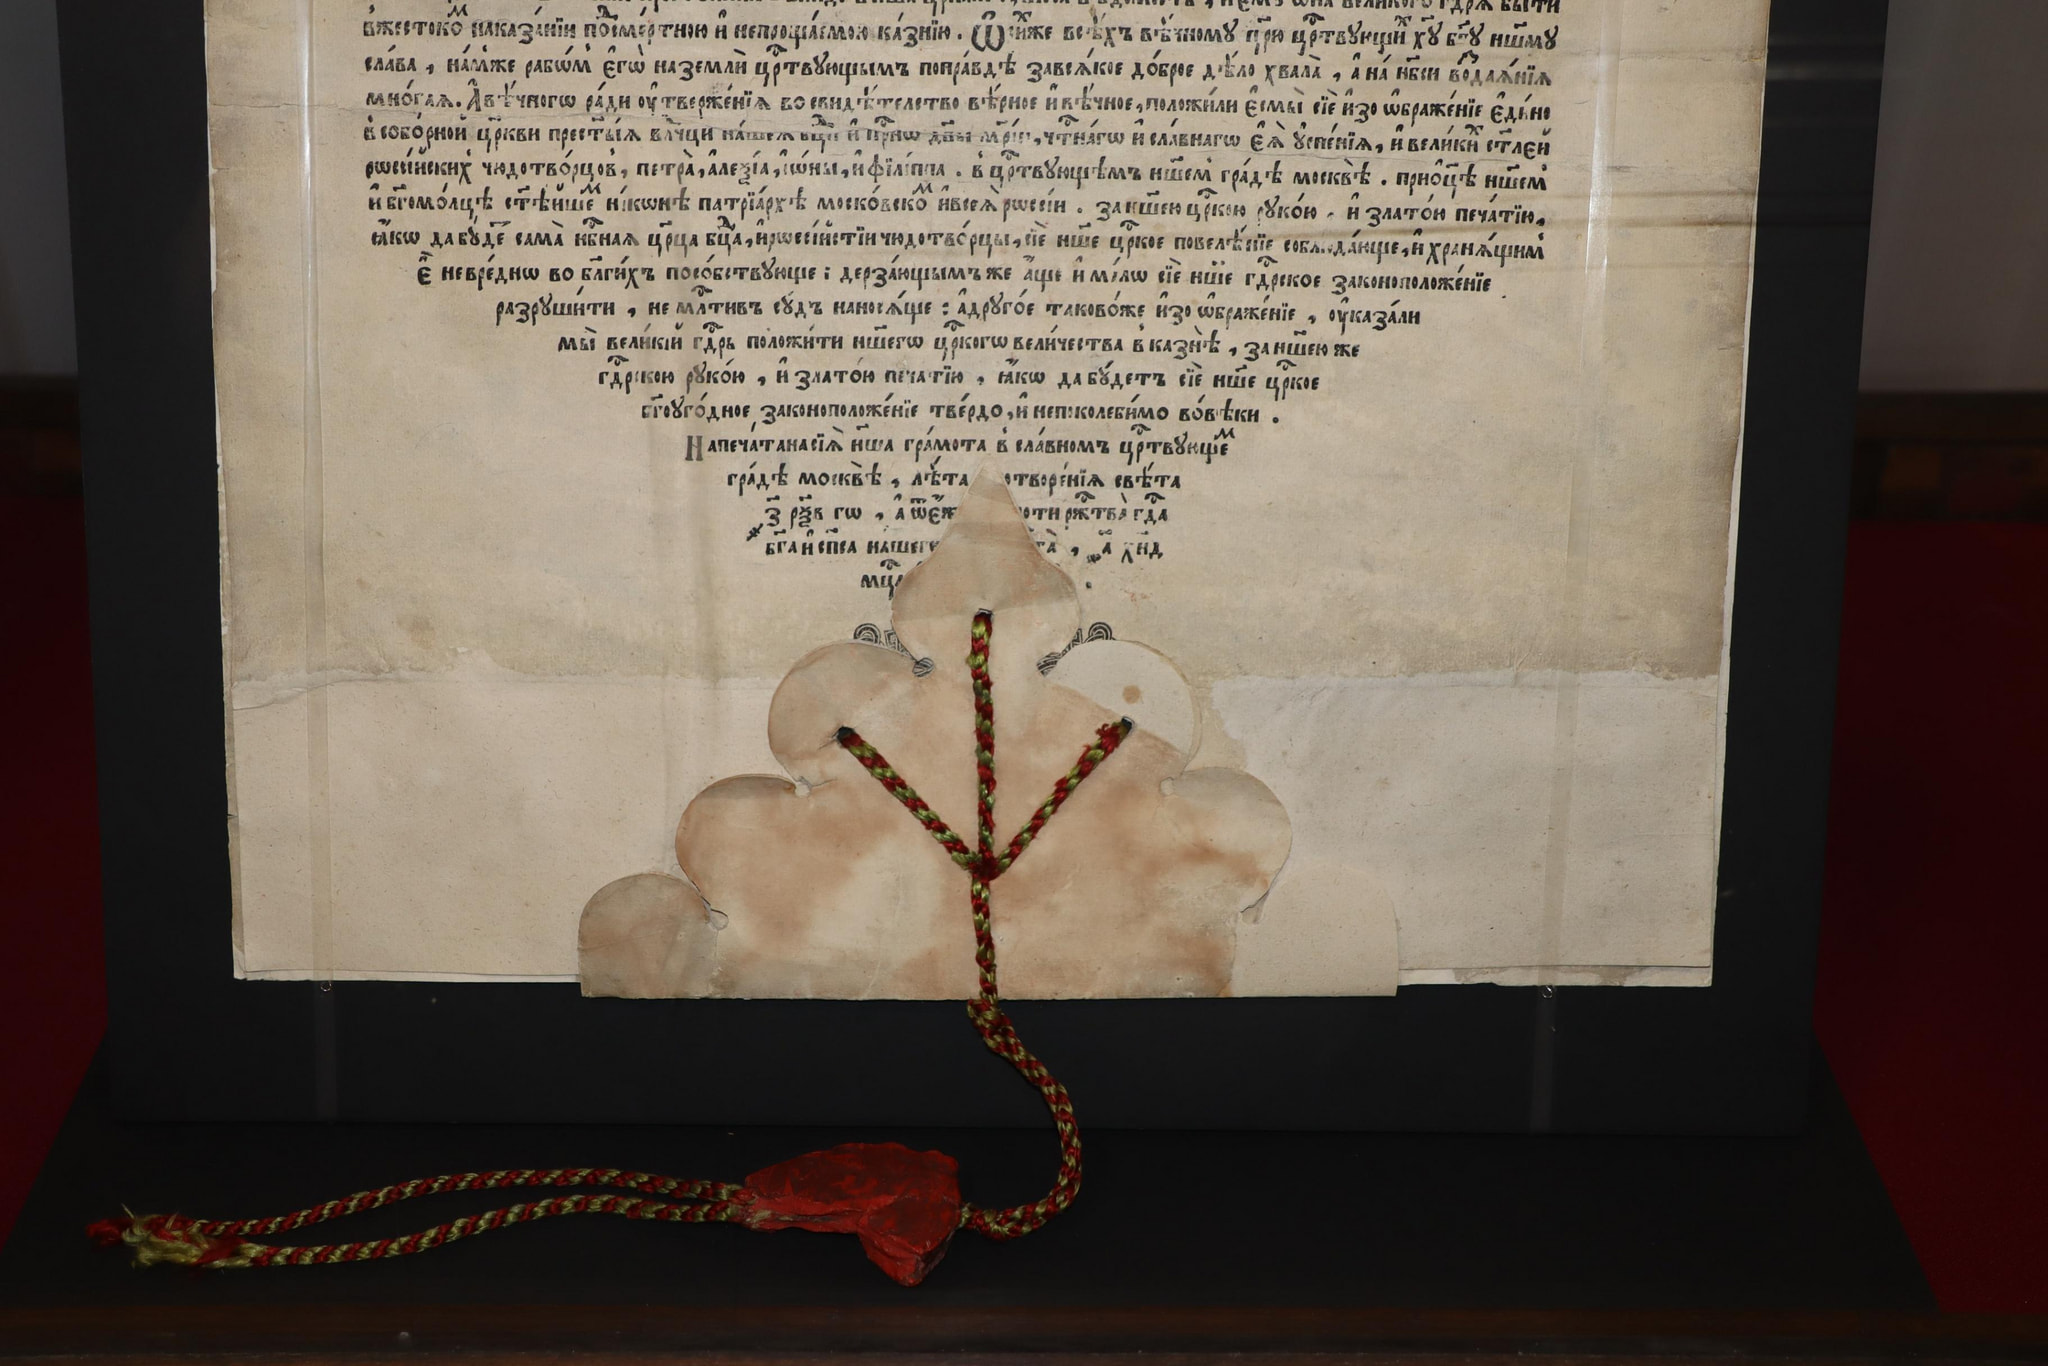 вжестоко наказанїи по смертною и непрощаемою казнїю . Ѿ сихже всѣхъ вѣчному цр҃ю црⷭ҇твующи хрⷭ҇ту бг҃у нш҃му
слава , намже рабѡм̾ є҆гѡ̀ на землѝ црⷭ҇твующымъ поправдѣ завсѧкое до́брое дѣ́ло хвала̀ , а҆ на́ нб҃си во́здаѧ́нїѧ
мно́гаѧ . А҆ вѣ́чнагѡ ра́ди оу҆твержє́нїѧ во свидѣ́телство вѣ́рное и҆ вѣ́чное , положи́ли є҆смы̀ сїѐ и҆зо ѡ҆браже́нїе є҆ди́но
в̾ собо́рной црⷪ҇кви прест҃ы́ѧ влⷣчцы на́шеѧ бцⷣы и҆ прⷭ҇нѡ дв҃ы мр҃і́и , чⷭ҇тна́гѡ и҆ сла́внагѡ є҆ѧ̀ ᲂу҆спе́нїѧ , и҆ вели́ки ст҃леи
рѡсі́йских̾ чюдотво́рцов̾ , петра̀ , а҆леѯі́а , і҆ѡ́ны , и҆ фїли́ппа . в̾ црⷭ҇твующемъ нш҃ем̾ гра́дѣ москвѣ̀ . при ѻ҆ц҃ѣ нш҃ем̾
и҆ бг҃омо́лцѣ ст҃ѣ́йше ни́конѣ патрїа́рхѣ моско́вско и҆ всеѧ̀ рѡсі́и . за нш҃ею црⷭ҇кою руко́ю , и҆ злато́ю печа́тїю ,
ꙗ҆́кѡ да бу́де сама̀ нбⷭ҇наѧ цр҃ца бцⷣа , и҆ рѡсі́йстїи чюдотво́рцы , сїѐ нш҃е црⷭ҇кое повелѣ́нїе соблюда́юще , и҆ хранѧ́щим̾
є҆̀ невре́днѡ во бл҃ги́хъ посо́бствующе : дерза́ющымъ же а҆́ще и҆ ма́лѡ сїѐ нш҃е гдⷭ҇рское законоположе́нїе
разруши́ти , не млⷭ҇тивъ су́дъ наносѧ́ще : а҆ друго́е таково́же и҆зо ѡ҆браже́нїе , ᲂу҆каза́ли
мы̀ вели́кїй гдⷭ҇рь положи́ти нш҃егѡ црⷭ҇когѡ вели́чества в̾ казнѣ̀ , за нш҃ею же
гдⷭ҇рскою руко́ю , и҆ злато́ю печа́тїю , ꙗ҆́кѡ да бу́детъ сїѐ нш҃е црⷭ҇кое
бг҃оуго́дное законоположе́нїе тве́рдо , и҆ непоколеби́мо во́вѣки .
Напеча́тана сїѧ̀ нш҃а гра́мота в̾ сла́вномъ црⷭ҇твующе
гра́дѣ москвѣ̀ , лѣ́та отворе́нїѧ свѣ́та
҂з҃ рѯ҃в гѡ , а҆ рожⷭ҇тва̀ гдⷭ҇а
бг҃а и҆ сп҃са , ҂а҃ хн҃д